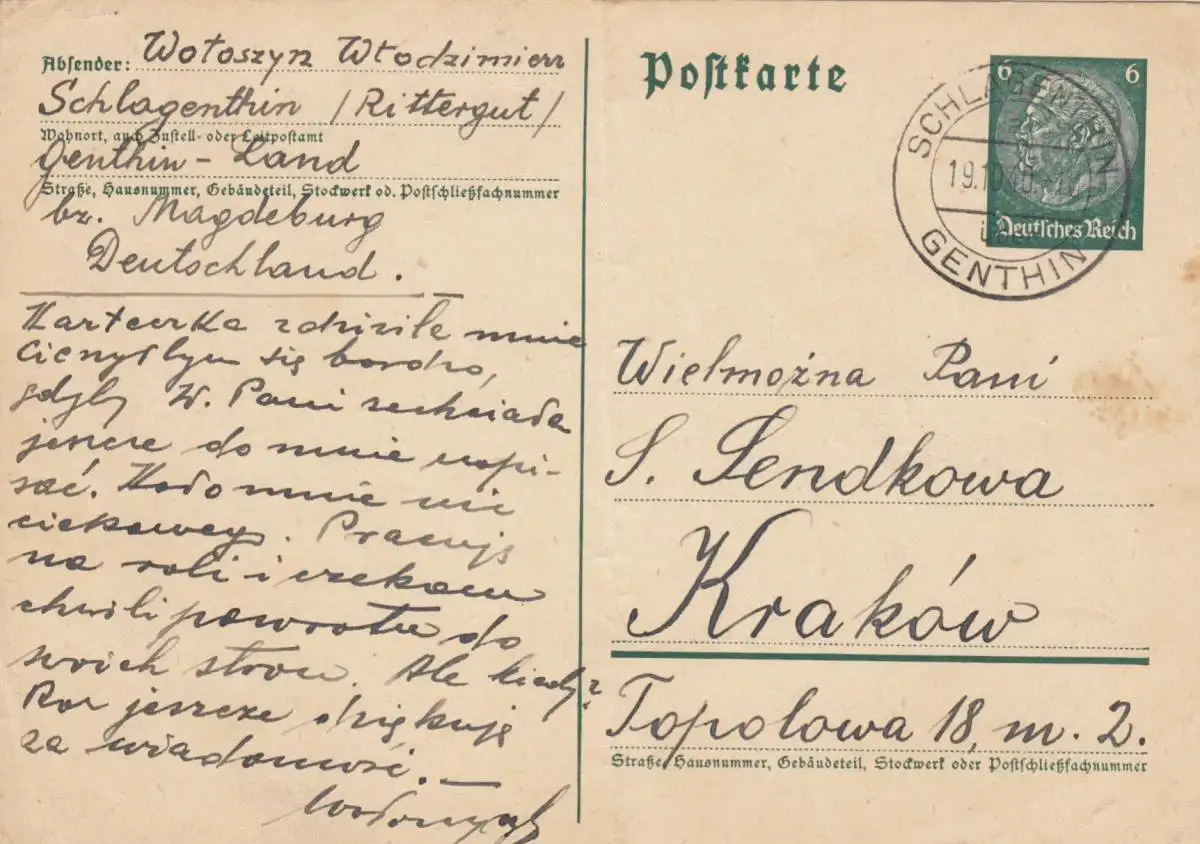 Absender: Wołoszyn Włodzimierz
Schlagenthin /Rittergut/
Wohnort, auch Zustell- oder Leitpostamt
Genthin-Land
Straße, Hausnummer, Gebäudeteil, Stockwerk od. Postschließfachnummer
bz. Magdeburg
Deutschland.
Karteczka zdziwiła mnie
się bardzo,
gdyby W. Pani zechciała
jeszcze do mnie napi-
sać. Koło mnie nic
ciekawego. Pracuję
na roli i czekam
chwili powrotu do
swoich stron. Ale kiedy?
Raz jeszcze dziękuję
za wiadomość. —
Wołoszyn
Postkarte
6 6
Deutsches Reich
SCHLAGENTHIN
19.10.40.
über
GENTHIN
Wielmożna Pani
S. Sendkowa
Kraków
Topolowa 18, m. 2.
Straße, Hausnummer, Gebäudeteil, Stockwerk oder Postschließfachnummer